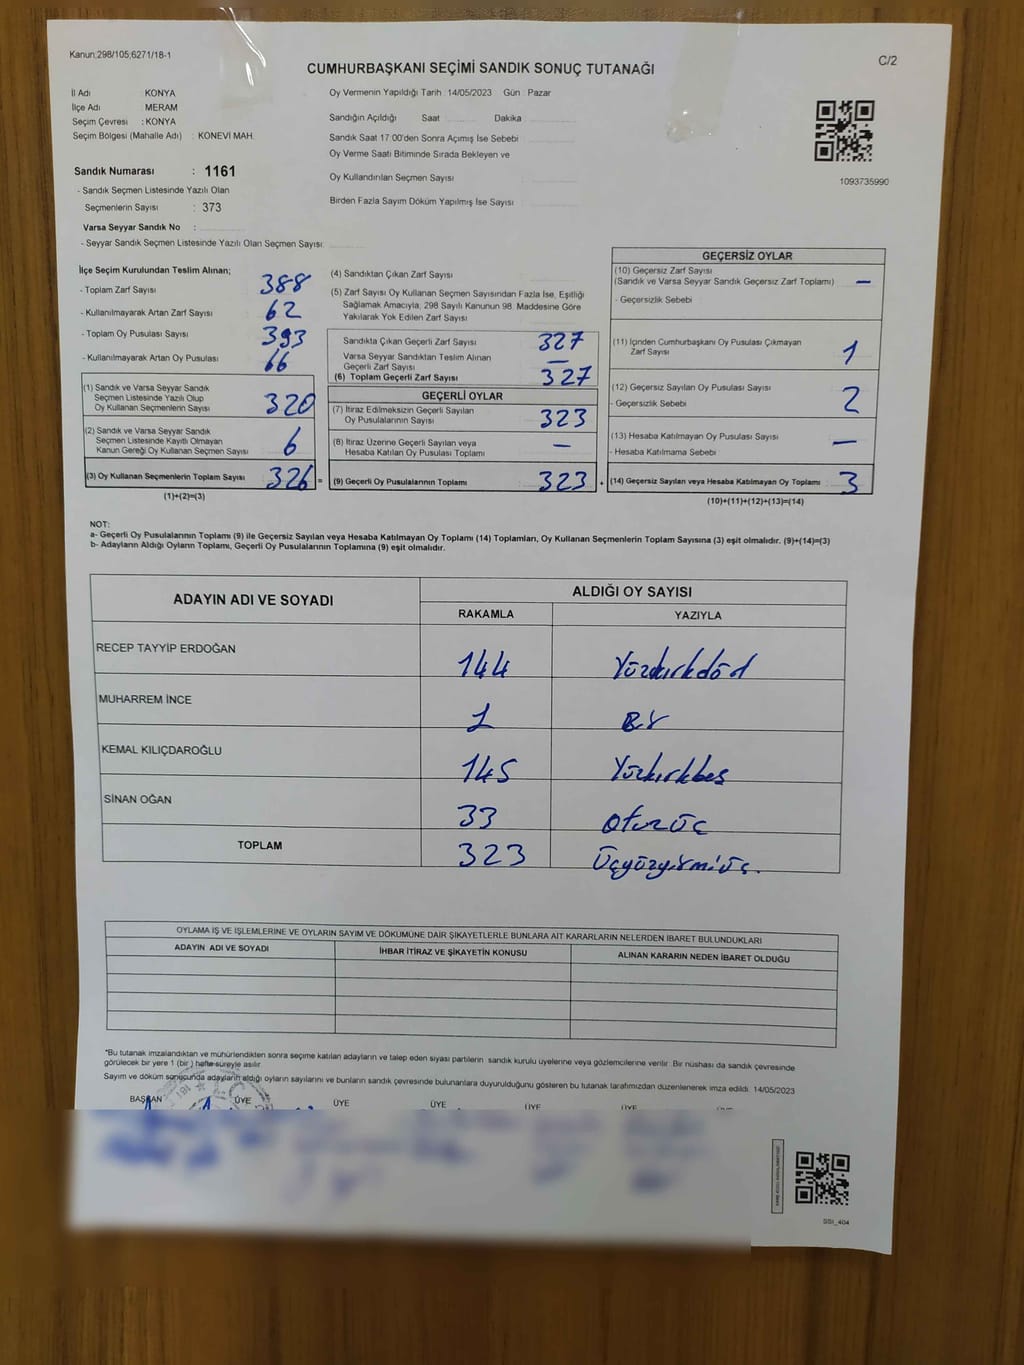 Kanun:298/105;6271/18-1
C/2
CUMHURBAŞKANI SEÇİMİ SANDIK SONUÇ TUTANAĞI
İl Adı : KONYA
İlçe Adı : MERAM
Seçim Çevresi : KONYA
Seçim Bölgesi (Mahalle Adı) : KONEVİ MAH.
Sandık Numarası : 1161
- Sandık Seçmen Listesinde Yazılı Olan
Seçmenlerin Sayısı : 373
Varsa Seyyar Sandık No :
- Seyyar Sandık Seçmen Listesinde Yazılı Olan Seçmen Sayısı:
Oy Vermenin Yapıldığı Tarih : 14/05/2023 Gün : Pazar
Sandığın Açıldığı Saat Dakika
Sandık Saat 17:00'den Sonra Açımış İse Sebebi
Oy Verme Saati Bitiminde Sırada Bekleyen ve
Oy Kullandırılan Seçmen Sayısı
Birden Fazla Sayım Döküm Yapılmış İse Sayısı
1093735990
İlçe Seçim Kurulundan Teslim Alınan;
- Toplam Zarf Sayısı 388
- Kullanılmayarak Artan Zarf Sayısı 62
- Toplam Oy Pusulası Sayısı 393
- Kullanılmayarak Artan Oy Pusulası 66
(1) Sandık ve Varsa Seyyar Sandık
Seçmen Listesinde Yazılı Olup
Oy Kullanan Seçmenlerin Sayısı 320
(2) Sandık ve Varsa Seyyar Sandık
Seçmen Listesinde Kayıtlı Olmayan
Kanun Gereği Oy Kullanan Seçmen Sayısı 6
(3) Oy Kullanan Seçmenlerin Toplam Sayısı 326 =
(1)+(2)=(3)
(4) Sandıktan Çıkan Zarf Sayısı
(5) Zarf Sayısı Oy Kullanan Seçmen Sayısından Fazla İse, Eşitliği
Sağlamak Amacıyla, 298 Sayılı Kanunun 98. Maddesine Göre
Yakılarak Yok Edilen Zarf Sayısı
Sandıkta Çıkan Geçerli Zarf Sayısı 327
Varsa Seyyar Sandıktan Teslim Alınan
Geçerli Zarf Sayısı —
(6) Toplam Geçerli Zarf Sayısı 327
GEÇERLİ OYLAR
(7) İtiraz Edilmeksizin Geçerli Sayılan
Oy Pusulalarının Sayısı 323
(8) İtiraz Üzerine Geçerli Sayılan veya
Hesaba Katılan Oy Pusulası Toplamı —
(9) Geçerli Oy Pusulalarının Toplamı 323 +
GEÇERSİZ OYLAR
(10) Geçersiz Zarf Sayısı
(Sandık ve Varsa Seyyar Sandık Geçersiz Zarf Toplamı) —
- Geçersizlik Sebebi
(11) İçinden Cumhurbaşkanı Oy Pusulası Çıkmayan
Zarf Sayısı 1
(12) Geçersiz Sayılan Oy Pusulası Sayısı 2
- Geçersizlik Sebebi
(13) Hesaba Katılmayan Oy Pusulası Sayısı —
- Hesaba Katılmama Sebebi
(14) Geçersiz Sayılan veya Hesaba Katılmayan Oy Toplamı 3
(10)+(11)+(12)+(13)=(14)
NOT:
a- Geçerli Oy Pusulalarının Toplamı (9) ile Geçersiz Sayılan veya Hesaba Katılmayan Oy Toplamı (14) Toplamları, Oy Kullanan Seçmenlerin Toplam Sayısına (3) eşit olmalıdır. (9)+(14)=(3)
b- Adayların Aldığı Oyların Toplamı, Geçerli Oy Pusulalarının Toplamına (9) eşit olmalıdır.
ADAYIN ADI VE SOYADI ALDIĞI OY SAYISI
RAKAMLA YAZIYLA
RECEP TAYYİP ERDOĞAN 144 Yüzkırkdört
MUHARREM İNCE 1 Bir
KEMAL KILIÇDAROĞLU 145 Yüzkırkbeş
SİNAN OĞAN 33 otuzüç
TOPLAM 323 Üçyüzyirmiüç.
OYLAMA İŞ VE İŞLEMLERİNE VE OYLARIN SAYIM VE DÖKÜMÜNE DAİR ŞİKAYETLERLE BUNLARA AİT KARARLARIN NELERDEN İBARET BULUNDUKLARI
ADAYIN ADI VE SOYADI İHBAR İTİRAZ VE ŞİKAYETİN KONUSU ALINAN KARARIN NEDEN İBARET OLDUĞU
*Bu tutanak imzalandıktan ve mühürlendikten sonra seçime katılan adayların ve talep eden siyasi partilerin sandık kurulu üyelerine veya gözlemcilerine verilir. Bir nüshası da sandık çevresinde
görülecek bir yere 1 (bir ) hafta süreyle asılır.
Sayım ve döküm sonucunda adayların aldığı oyların sayılarını ve bunların sandık çevresinde bulunanlara duyurulduğunu gösteren bu tutanak tarafımızdan düzenlenerek imza edildi. 14/05/2023
BAŞKAN ÜYE ÜYE ÜYE ÜYE ÜYE ÜYE
SSI_404